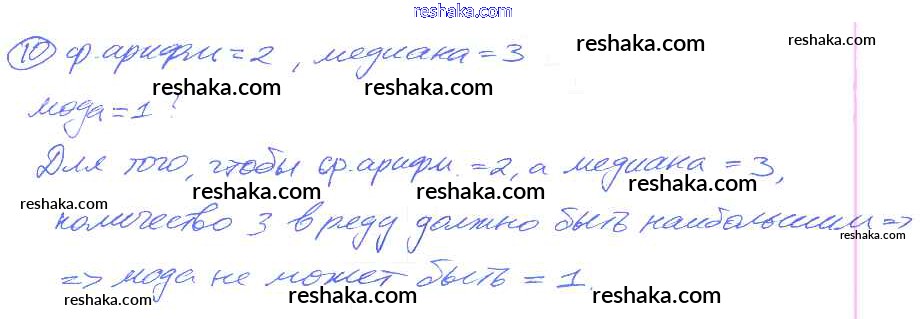 reshaka.com
⑩ ср.арифм=2, медиана=3 reshaka.com
reshaka.com reshaka.com reshaka.com
мода=1?
reshaka.com reshaka.com
Для того, чтобы ср.арифм.=2, а медиана=3,
reshaka.com reshaka.com reshaka.com reshaka.com
количество 3 в реду должно быть наибольшим =>
reshaka.com reshaka.com reshaka.com
=> мода не может быть = 1.
reshaka.com reshaka.com reshaka.com reshaka.com